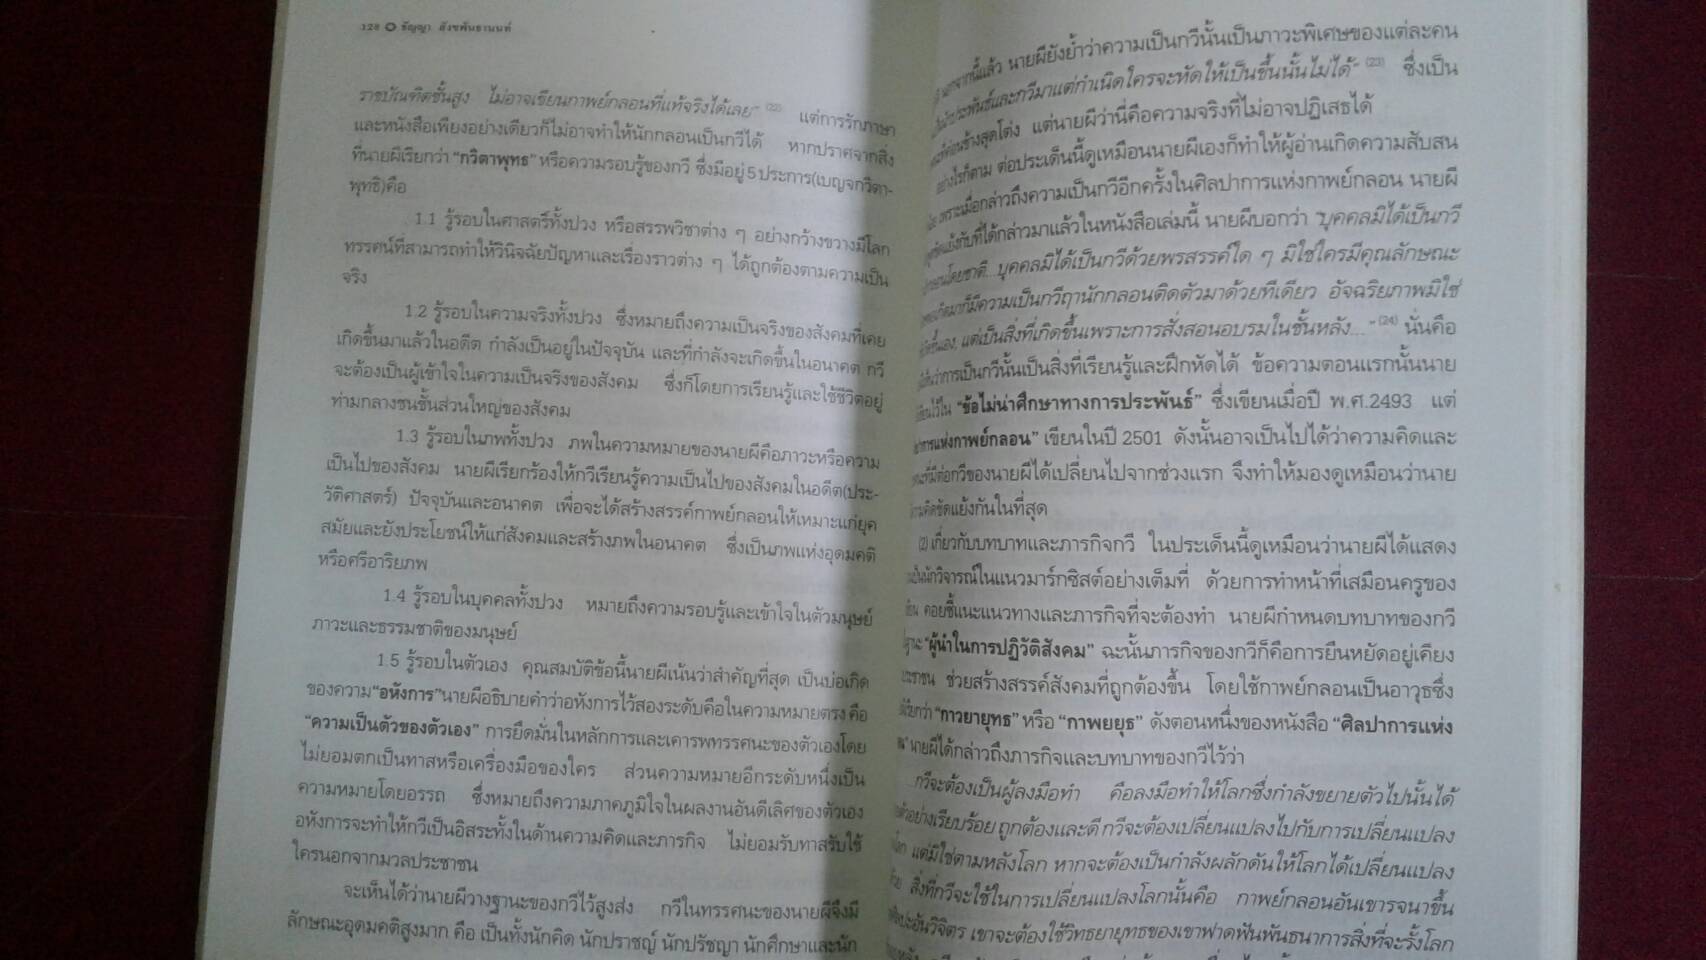 128 ธัญญา สังขพันธานนท์
ราชบัณฑิตชั้นสูง ไม่อาจเขียนกาพย์กลอนที่แท้จริงได้เลย" (22) แต่การรักภาษา
และหนังสือเพียงอย่างเดียวก็ไม่อาจทำให้นักกลอนเป็นกวีได้ หากปราศจากสิ่ง
ที่นายผีเรียกว่า "กวิตาพุทธ" หรือความรอบรู้ของกวี ซึ่งมีอยู่ 5 ประการ(เบญจกวิตา-
พุทธิ)คือ
1.1 รู้รอบในศาสตร์ทั้งปวง หรือสรรพวิชาต่าง ๆ อย่างกว้างขวางมีโลก
ทรรศน์ที่สามารถทำให้วินิจฉัยปัญหาและเรื่องราวต่าง ๆ ได้ถูกต้องตามความเป็น
จริง
1.2 รู้รอบในความจริงทั้งปวง ซึ่งหมายถึงความเป็นจริงของสังคมที่เคย
เกิดขึ้นมาแล้วในอดีต กำลังเป็นอยู่ในปัจจุบัน และที่กำลังจะเกิดขึ้นในอนาคต กวี
จะต้องเป็นผู้เข้าใจในความเป็นจริงของสังคม ซึ่งก็โดยการเรียนรู้และใช้ชีวิตอยู่
ท่ามกลางชนชั้นส่วนใหญ่ของสังคม
1.3 รู้รอบในภพทั้งปวง ภพในความหมายของนายผีคือภาวะหรือความ
เป็นไปของสังคม นายผีเรียกร้องให้กวีเรียนรู้ความเป็นไปของสังคมในอดีต(ประ-
วัติศาสตร์) ปัจจุบันและอนาคต เพื่อจะได้สร้างสรรค์กาพย์กลอนให้เหมาะแก่ยุค
สมัยและยังประโยชน์ให้แก่สังคมและสร้างภพในอนาคต ซึ่งเป็นภพแห่งอุดมคติ
หรือศรีอาริยภพ
1.4 รู้รอบในบุคคลทั้งปวง หมายถึงความรอบรู้และเข้าใจในตัวมนุษย์
ภาวะและธรรมชาติของมนุษย์
1.5 รู้รอบในตัวเอง คุณสมบัติข้อนี้นายผีเน้นว่าสำคัญที่สุด เป็นบ่อเกิด
ของความ"อหังการ"นายผีอธิบายคำว่าอหังการไว้สองระดับคือในความหมายตรง คือ
"ความเป็นตัวของตัวเอง" การยึดมั่นในหลักการและเคารพทรรศนะของตัวเองโดย
ไม่ยอมตกเป็นทาสหรือเครื่องมือของใคร ส่วนความหมายอีกระดับหนึ่งเป็น
ความหมายโดยอรรถ ซึ่งหมายถึงความภาคภูมิใจในผลงานอันดีเลิศของตัวเอง
อหังการจะทำให้กวีเป็นอิสระทั้งในด้านความคิดและภารกิจ ไม่ยอมรับทาสรับใช้
ใครนอกจากมวลประชาชน
จะเห็นได้ว่านายผีวางฐานะของกวีไว้สูงส่ง กวีในทรรศนะของนายผีจึงมี
ลักษณะอุดมคติสูงมาก คือ เป็นทั้งนักคิด นักปราชญ์ นักปรัชญา นักศึกษาและนัก
นอกจากนี้แล้ว นายผียังย้ำว่าความเป็นกวีนั้นเป็นภาวะพิเศษของแต่ละคน
เป็นนักประพันธ์และกวีมาแต่กำเนิดใครจะหัดให้เป็นขึ้นนั้นไม่ได้" (23) ซึ่งเป็น
ค่อนข้างสุดโต่ง แต่นายผีว่านี่คือความจริงที่ไม่อาจปฏิเสธได้
อย่างไรก็ตาม ต่อประเด็นนี้ดูเหมือนนายผีเองก็ทำให้ผู้อ่านเกิดความสับสน
เพราะเมื่อกล่าวถึงความเป็นกวีอีกครั้งในศิลปาการแห่งกาพย์กลอน นายผี
ขัดแย้งกับที่ได้กล่าวมาแล้วในหนังสือเล่มนี้ นายผีบอกว่า "บุคคลมิได้เป็นกวี
โดยชาติ...บุคคลมิได้เป็นกวีด้วยพรสรรค์ใด ๆ มิใช่ใครมีคุณลักษณะ
เกิดมาก็มีความเป็นกวีฤานักกลอนติดตัวมาด้วยทีเดียว อัจฉริยภาพมิใช่
แต่เป็นสิ่งที่เกิดขึ้นเพราะการสั่งสอนอบรมในชั้นหลัง..." (24) นั่นคือ
ว่าการเป็นกวีนั้นเป็นสิ่งที่เรียนรู้และฝึกหัดได้ ข้อความตอนแรกนั้นนาย
ไว้ใน "ข้อไม่น่าศึกษาทางการประพันธ์" ซึ่งเขียนเมื่อปี พ.ศ.2493 แต่
แห่งกาพย์กลอน" เขียนในปี 2501 ดังนั้นอาจเป็นไปได้ว่าความคิดและ
ที่มีต่อกวีของนายผีได้เปลี่ยนไปจากช่วงแรก จึงทำให้มองดูเหมือนว่านาย
ขัดแย้งกันในที่สุด
(2) เกี่ยวกับบทบาทและภารกิจกวี ในประเด็นนี้ดูเหมือนว่านายผีได้แสดง
เป็นนักวิจารณ์ในแนวมาร์กซิสต์อย่างเต็มที่ ด้วยการทำหน้าที่เสมือนครูของ
คอยชี้แนะแนวทางและภารกิจที่จะต้องทำ นายผีกำหนดบทบาทของกวี
"ผู้นำในการปฏิวัติสังคม" ฉะนั้นภารกิจของกวีก็คือการยืนหยัดอยู่เคียง
ประชาชน ช่วยสร้างสรรค์สังคมที่ถูกต้องขึ้น โดยใช้กาพย์กลอนเป็นอาวุธซึ่ง
เรียกว่า "กาวยายุทธ" หรือ "กาพยยุธ" ดังตอนหนึ่งของหนังสือ "ศิลปาการแห่ง
นายผีได้กล่าวถึงภารกิจและบทบาทของกวีไว้ว่า
กวีจะต้องเป็นผู้ลงมือทำ คือลงมือทำให้โลกซึ่งกำลังขยายตัวไปนั้นได้
อย่างเรียบร้อย ถูกต้องและดี กวีจะต้องเปลี่ยนแปลงไปกับการเปลี่ยนแปลง
แต่มิใช่ตามหลังโลก หากจะต้องเป็นกำลังผลักดันให้โลกได้เปลี่ยนแปลง
สิ่งที่กวีจะใช้ในการเปลี่ยนแปลงโลกนั้นคือ กาพย์กลอนอันเขารจนาขึ้น
อันวิจิตร เขาจะต้องใช้วิทยายุทธของเขาฟาดฟันพันธนาการสิ่งที่จะรั้งโลก